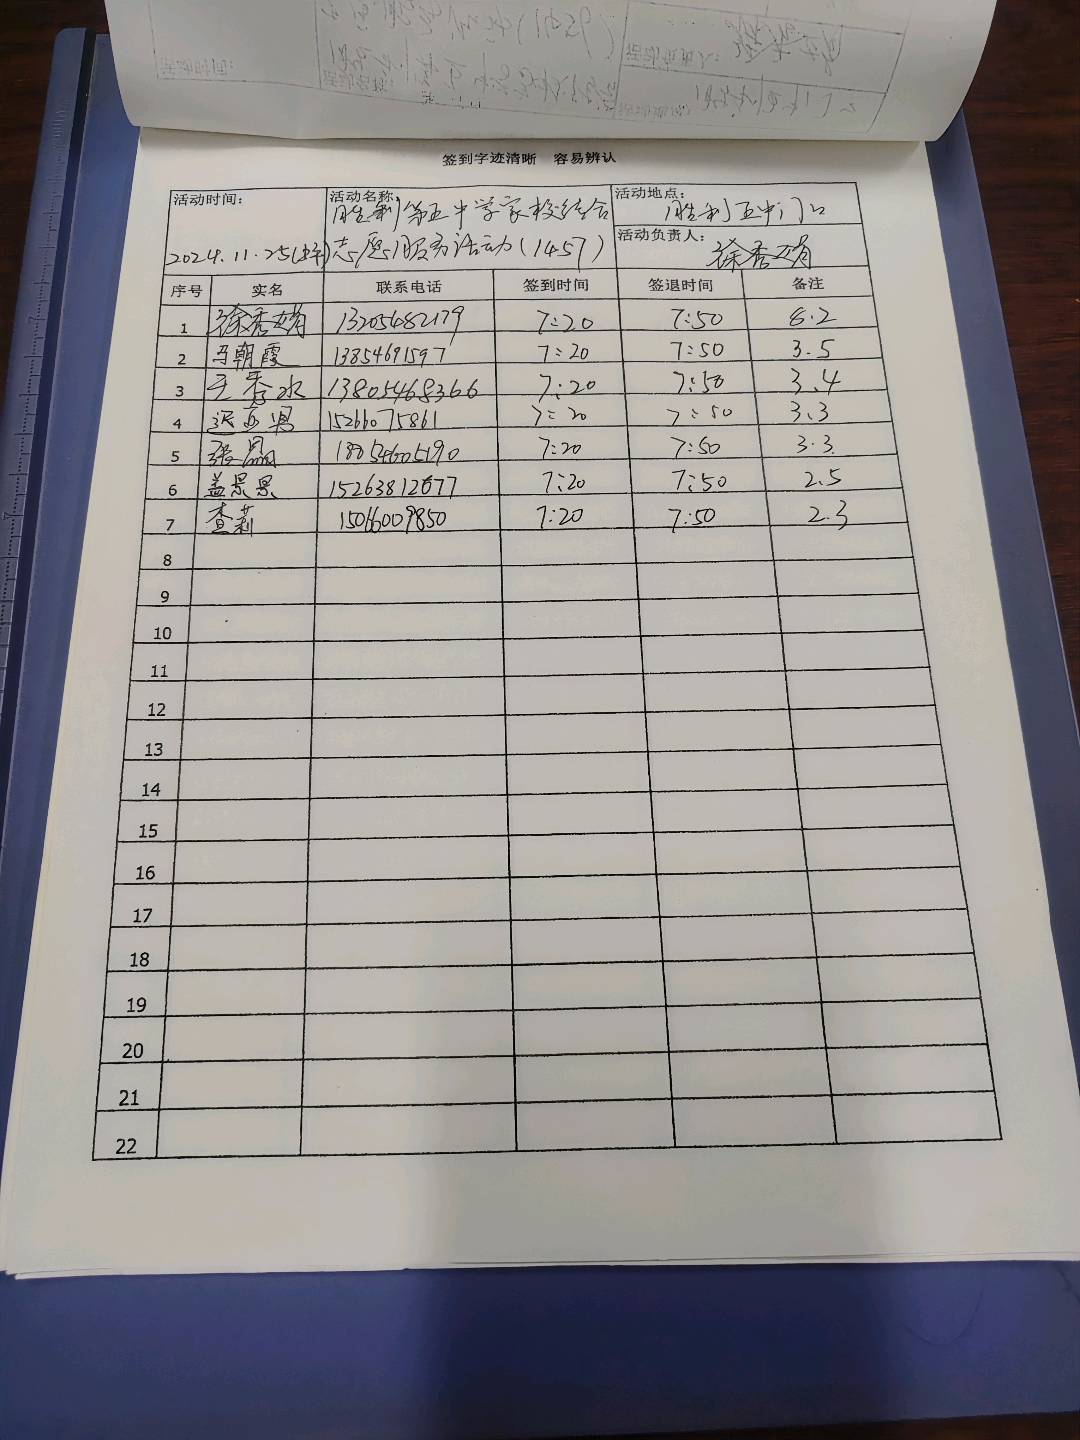 签到字迹清晰 容易辨认
活动时间: 2024.11.25
活动名称: 胜利第五中学家校结合志愿服务活动(1457)
活动地点: 胜利五中门口
活动负责人: 徐秀娟
序号 实名 联系电话 签到时间 签退时间 备注
1 徐秀娟 13205482179 7:20 7:50 8.2
2 马朝霞 13854691597 7:20 7:50 3.5
3 王秀水 13805468366 7:20 7:50 3.4
4 15266075861 7:20 7:50 3.3
5 张晶 18854605190 7:20 7:50 3.3
6 盖景景 15263812677 7:20 7:50 2.5
7 查莉 15066009850 7:20 7:50 2.3
8
9
10
11
12
13
14
15
16
17
18
19
20
21
22